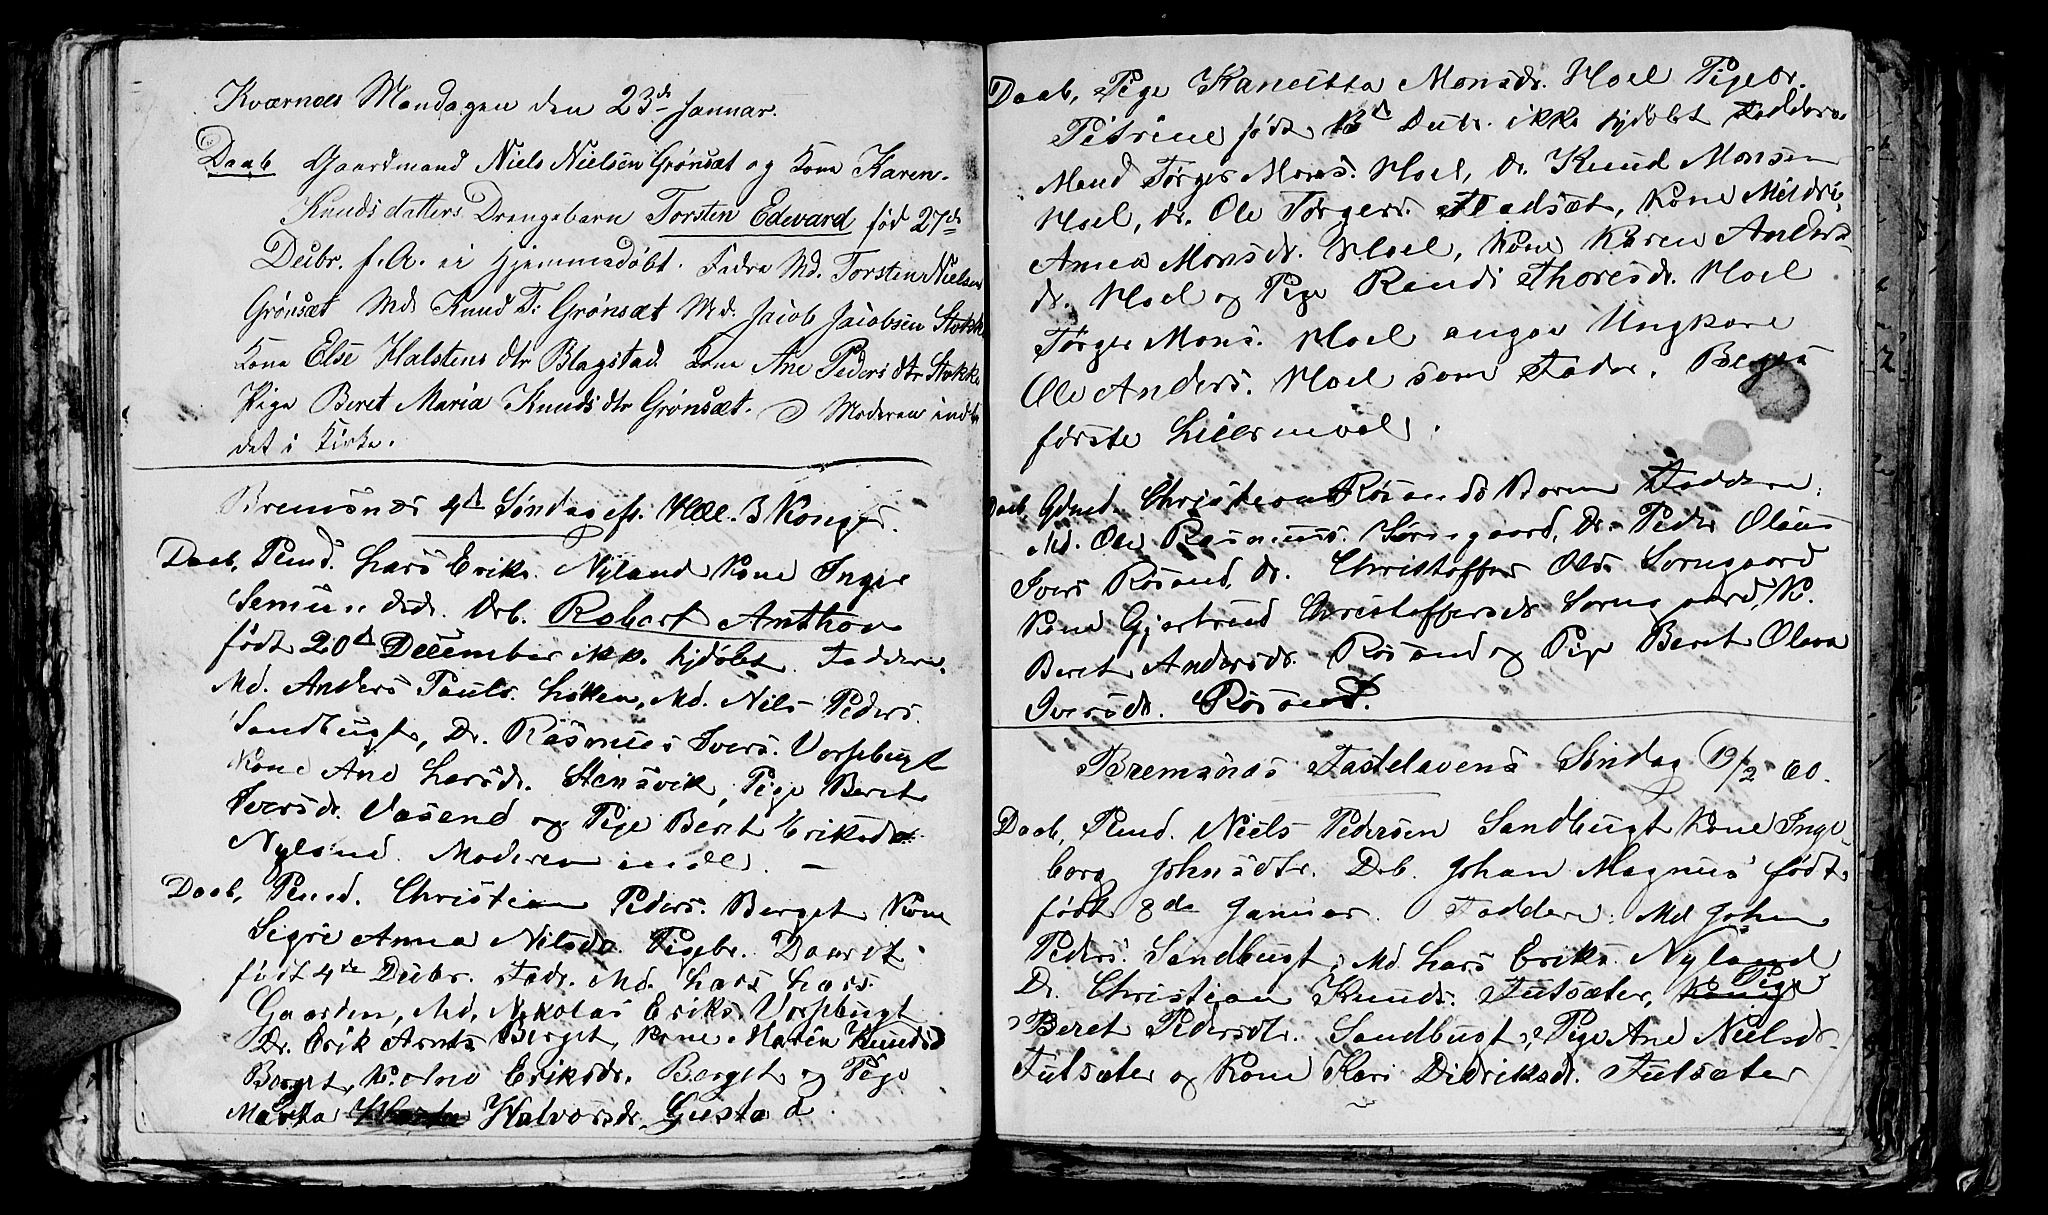 Kværnes Mandagen den 23de Januar.
Daab Gaardmand Niels Nielsen Grønsæt og Kone Karen
Knudsdatters Drengebarn Torsten Edvard fød 27de
Decbr. f. A. ei hjemmedøbt. Fadre Md. Torsten Nielsen
Grønsæt Md. Knud T: Grønsæt Md. Jacob Jacobsen Stokke
Kone Else Halstensdtr Blagstad Kone Ane Pedersdtr Stokke
Pige Beret Maria Knudsdtr Grønsæt. Moderen indle
det i Kirke.
Bremsnæs 4d Søndag eft. Hell. 3 Konger.
Daab, Pmd. Lars Eriks. Nyland Kone Inger
Semundsdr. Drb. Robert Anthon
født 20d December ikk. hjdøbt. Faddere.
Md. Anders Pauls. Løken, Md. Nils Peders.
Sandbugt, Dr. Rasmus Ivers. Vorpebugt
Kone Ane Larsdr. Stensvik, Pige Beret
Iversdr. Vasend og Pige Beret Eriksdr
Nyland. Moderen indl. –
Daab, Pmd. Christian Peders. Berget Kone
Sigri Anna Nilsdr. Pigebr. Dauret
født 4de Decbr. Fadr. Md. Lars Lars.
Gaarden, Md. Nikolas Eriks. Vorpebugt
Dr. Erik Arnts. Berget, Kone Maren Knudsd
Berget, K. Ane Eriksdr. Berget og Pige
Marta Halvorsdr. Gustad.
Daab, Pige Hansitta Monsdr. Hoel Pigebr.
Petrine født Decbr. ikke hjdøbt Faddere.
Mand Tørger Mons. Hoel, Dr. Knud Monsen
Hoel, Dr. Ole Tørgers. Fladsæt, Kone Mildri
Anna Monsdr. Hoel, Kone Karen Anders
dr. Hoel og Pige Randi Thoresdr. Hoel.
Tørger Mons. Hoel angav Ungkare
Ole Anders. Hoel som Fader. Begges
første Leiermaal.
Daab, Gdmd. Christian Røsands Barn Faddere:
Md. Ole Rasmus. Sørugaard, Dr. Peder Olaus
Ivers Røsand, Dr. Christoffer Ols. Sørugaard
Kone Gjertrud Christoffersdr Sørugaard, K.
Beret Andersdr. Røsand og Pige Beret Olava
Iversdr. Røsand.
Bremsnæs Fastelavens Søndag 19/2 60.
Daab, Pmd. Niels Pedersen Sandbugt Kone Inge
borg Johnsdtr. Drb. Johan Magnus født
født 8de Januar. Faddere: Md John
Peders. Sandbugt, Md Lars Eriks. Nyland
Dr. Christian Knuds. Futsæter, Pige
Beret Pedersdtr. Sandbugt, Pige Ane Nielsdr
Futsæter og Kone Kari Didriksdr. Futsæter